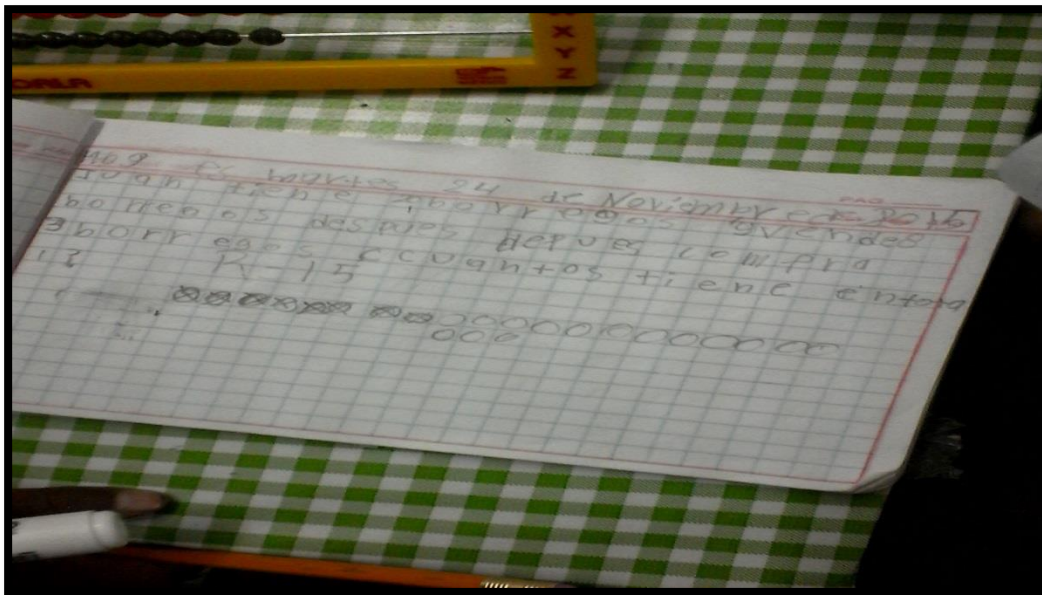 X
Y
Z
Hoy es martes 24 de Noviembre de 2015
Juan tiene borregos vende 8
borregos despues depues compra
3 borregos ¿cuantos tiene entota
l?
R=15